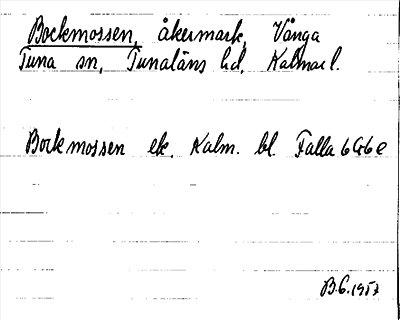 Bockmossen, åkermark, Vånga
Tuna sn, Tunaläns hd, Kalmar l.
Bockmossen ek. Kalm. bl. Falla 6G6e
B.G. 1953